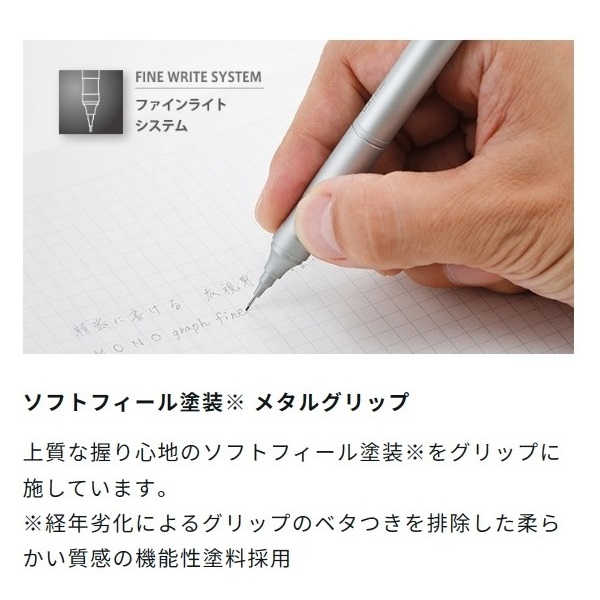 FINE WRITE SYSTEM
ファインライト
システム
精密に書ける 広視界
MONO graph fine
ソフトフィール塗装※ メタルグリップ
上質な握り心地のソフトフィール塗装※をグリップに
施しています。
※経年劣化によるグリップのベタつきを排除した柔ら
かい質感の機能性塗料採用